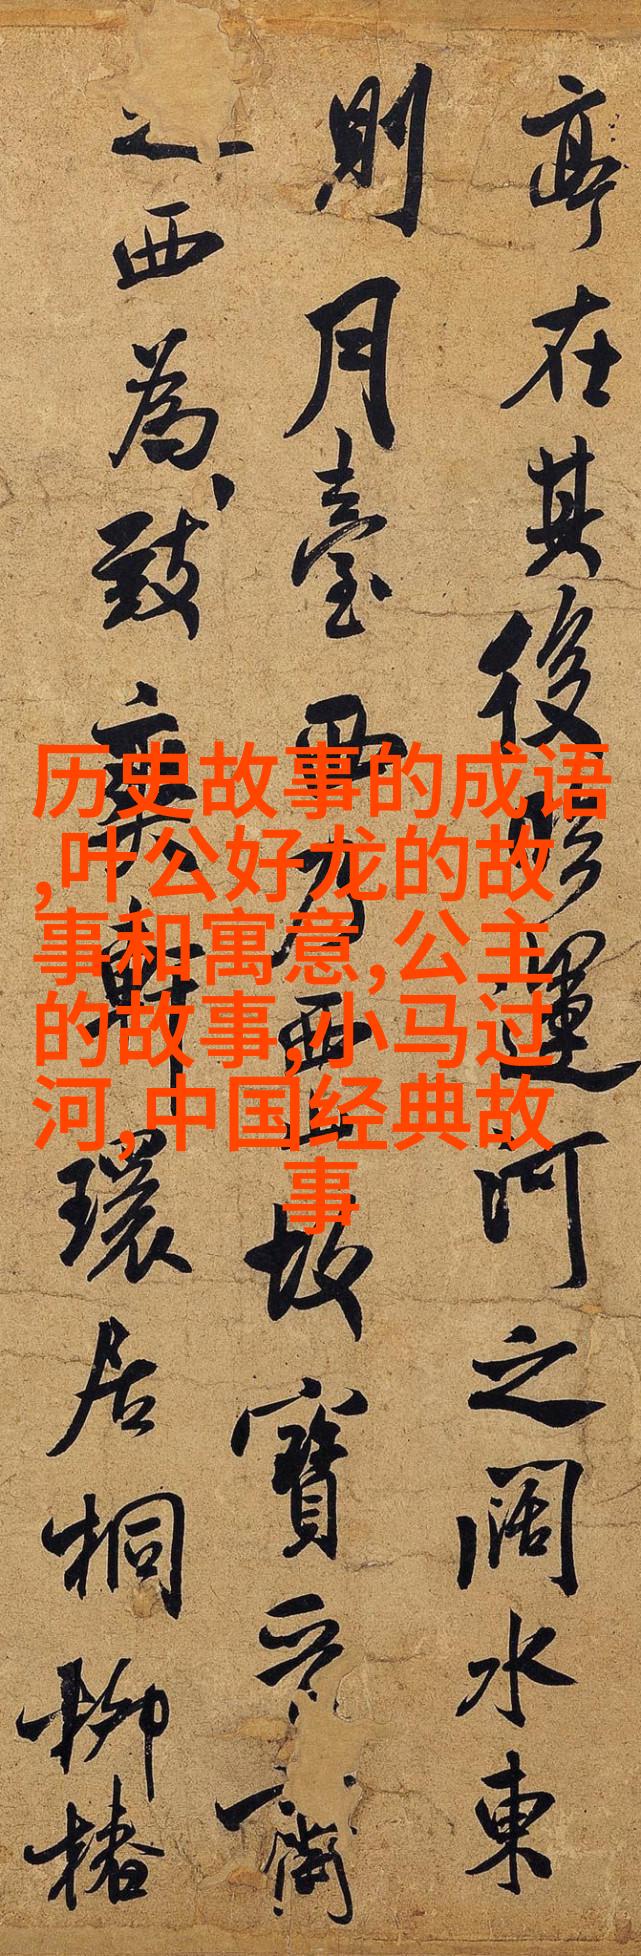 亭在其後臨運河之闊水東
則月臺西乃西山故寶晉齋
之西為致爽軒環居桐柳椿
历史故事的成语
,叶公好龙的故
事和寓意,公主
的故事,小马过
河,中国经典故
事